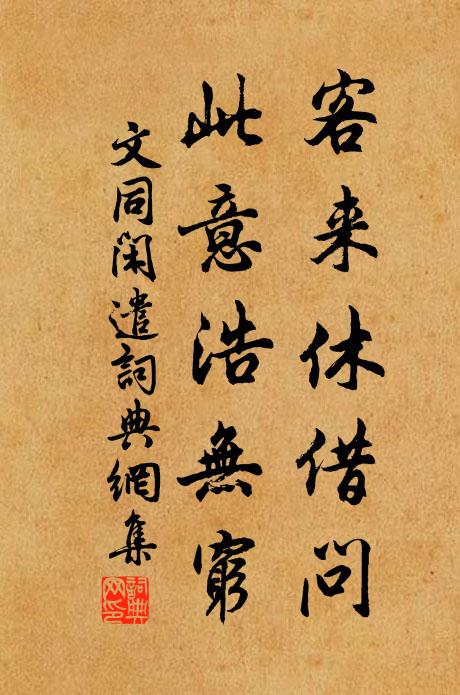 客来休借問
此意浩無窮
文同閑遣詞典網集
詞典
网印